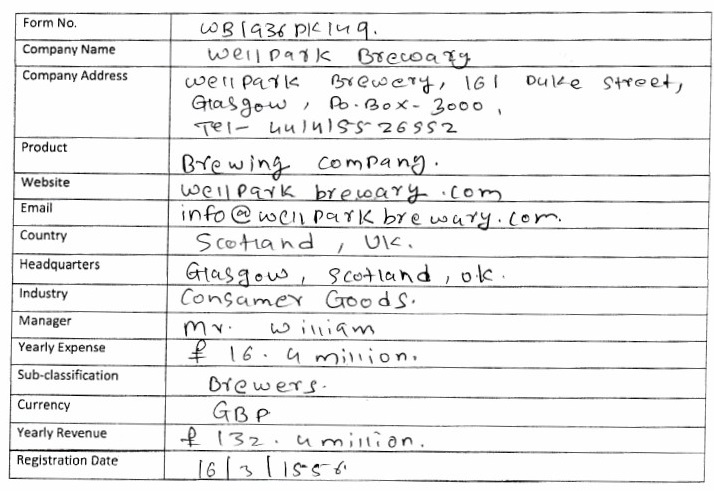 Form No. WB1936PK149.
Company Name Wellpark Brewary
Company Address Wellpark Brewery, 161 Duke Street,
Glasgow, Po.Box-3000,
Tel- 4414155 26552
Product Brewing company.
Website wellpark brewary.com
Email info@wellparkbrewary.com.
Country Scotland, UK.
Headquarters Glasgow, Scotland, UK.
Industry Consumer Goods.
Manager Mr. William
Yearly Expense £ 16.4 million.
Sub-classification Brewers.
Currency GBP
Yearly Revenue £ 132.4 million.
Registration Date 16/3/1556